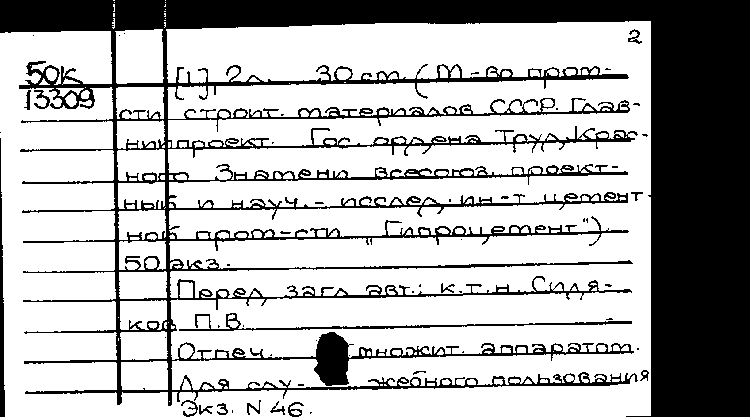 2
50К [1], 2л. 30 см. (М-во пром-
13309
сти строит. материалов СССР. Глав-
ниипроект. Гос. ордена Труд. Крас-
ного Знамени всесоюз. проект-
ный и науч.- исслед. ин-т цемент-
ной пром-сти „Гипроцемент")
50 экз.
Перед загл. авт.: к.т.н. Сидя-
ков П.В.
Отпеч. множит. аппаратом.
Для слу- жебного пользования
Экз. N 46.